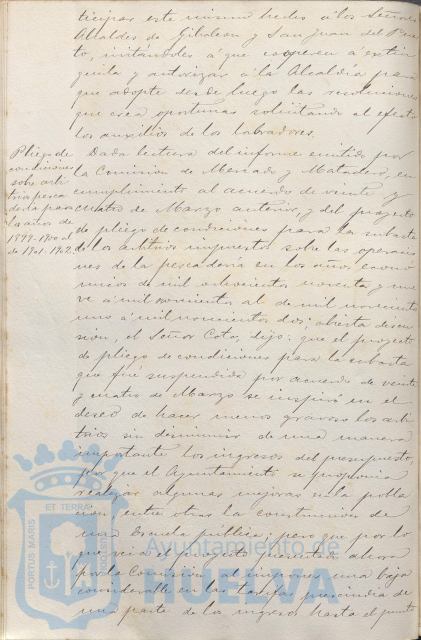 ticipar este mismo hecho á los Señores
Alcaldes de Gibraleon y San Juan del Puer
to, invitándoles á que cooperen á extin
guirla y autorizar á la Alcaldía para
que adopte desde luego las resoluciones
que crea oportunas solicitando al efecto
los auxilios de los labradores.
Pliego de
condiciones
sobre arbi
trios pesca
dería para
los años de
1899-1900 al
de 1901-1902.
Dada lectura del informe emitido por
la Comision de Mercado y Matadero, en
cumplimiento al acuerdo de veinte y
cuatro de Marzo anterior, y del proyecto
de pliego de condiciones para la subasta
de los arbitrios impuestos sobre las operacio
nes de la pescadería en los años econó
micos de mil ochocientos noventa y nue
ve á mil novecientos al de mil novecientos
uno á mil novecientos dos; abierta discu
sion, el Señor Coto, dijo: que el proyecto
de pliego de condiciones para la subasta
que fué suspendida por acuerdo de veinte
y cuatro de Marzo se inspiró en el
deseo de hacer menos gravoso los arbi
trios sin disminuir de una manera
importante los ingresos del presupuesto,
porque el Ayuntamiento se proponia
realizar algunas mejoras en la pobla
cion, entre otras la construccion de
una Escuela pública; pero que por lo
que veía el proyecto presentado ahora
por la Comision, al imponer una baja
considerable en las tarifas prescindia de
una parte de los ingresos hasta el punto
PORTUS MARIS
ET TERRAE
Ayuntamiento de
HUELVA